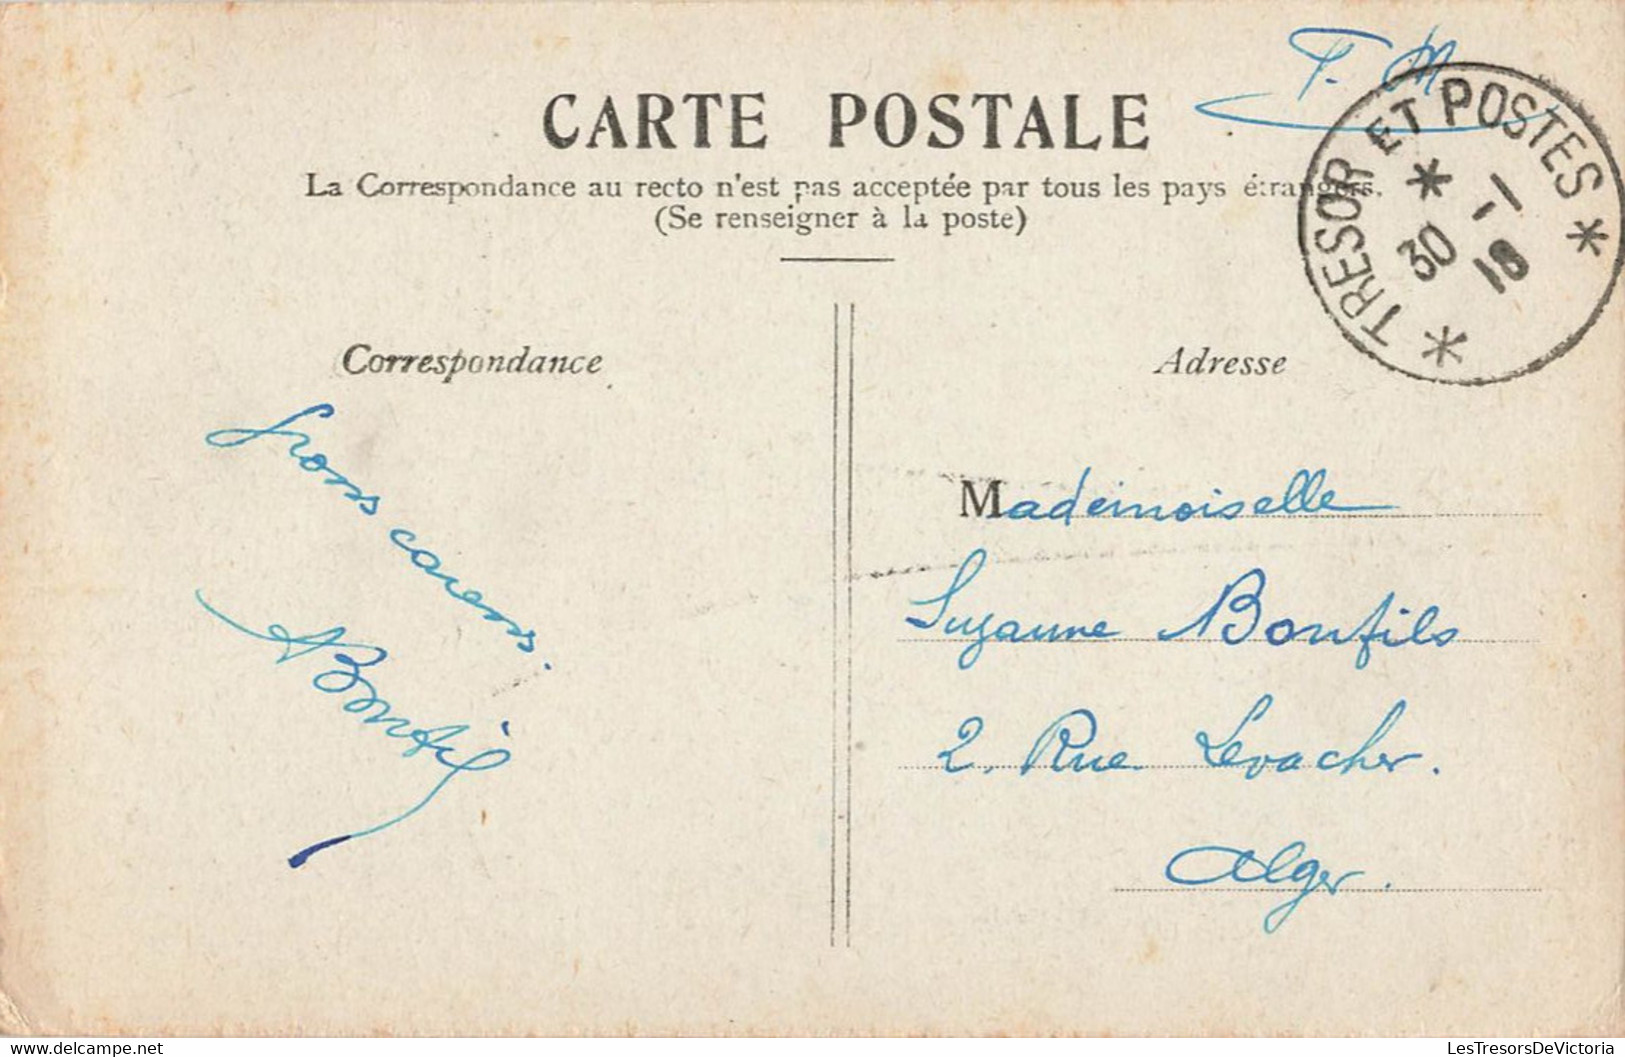 F. M
CARTE POSTALE
La Correspondance au recto n'est pas acceptée par tous les pays étrangers.
(Se renseigner à la poste)
* TRESOR ET POSTES *
* 30 -1 18
Correspondance
Gros
ABonfils
Adresse
Mademoiselle
Suzanne Bonfils
2. Rue Levacher.
Alger.
delcampe.net
LesTresorsDeVictoria